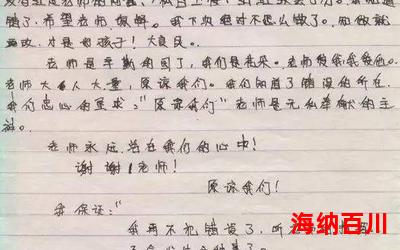 错了。希望老师原谅。我下次绝对不这么做了。知错就
改，才是好孩子！大良民。
老师是辛勤的园丁，我们是花朵。老师爱我，我爱他。
老师大人大量，原谅我们。我们知道了错误的所在。
我们忠心的恳求："原谅我们"老师是无私奉献的主
老师永远活在我们的心中！
谢谢！老师！
原谅我们！
我保证："
我再不犯错误了，听
海纳百川